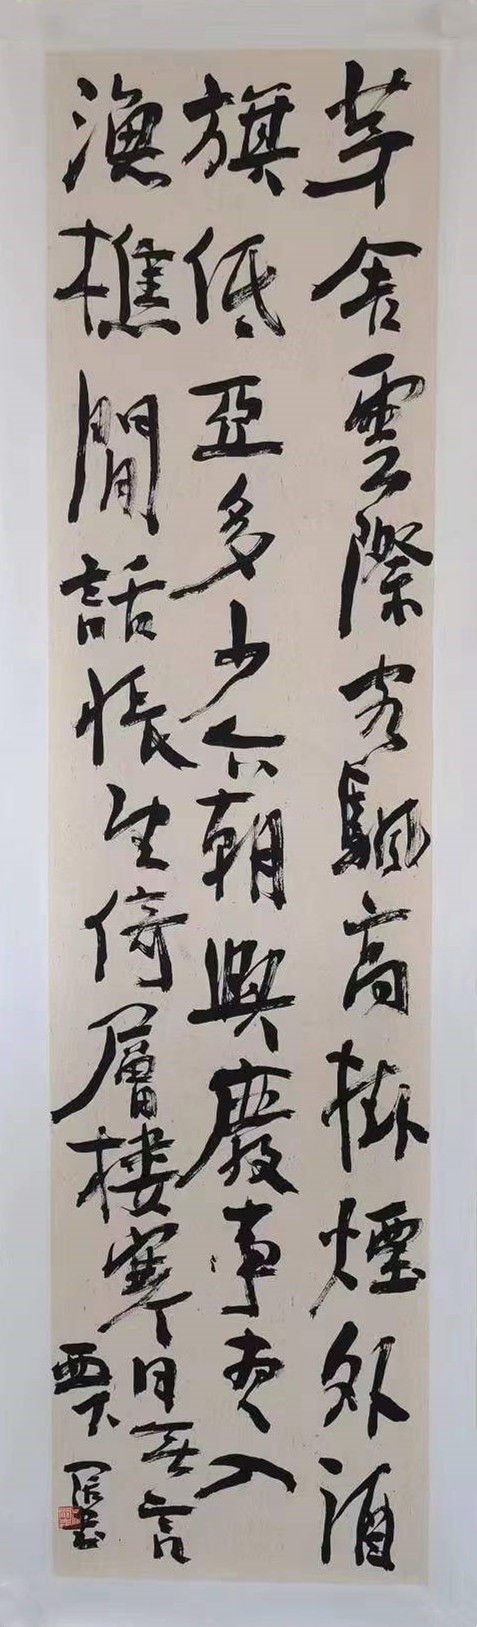 茅舍雲際客颿高掛煙外酒
旗低亞多少六朝興廢事盡入
漁樵閒話悵望倚層樓寒日无言
西下
書